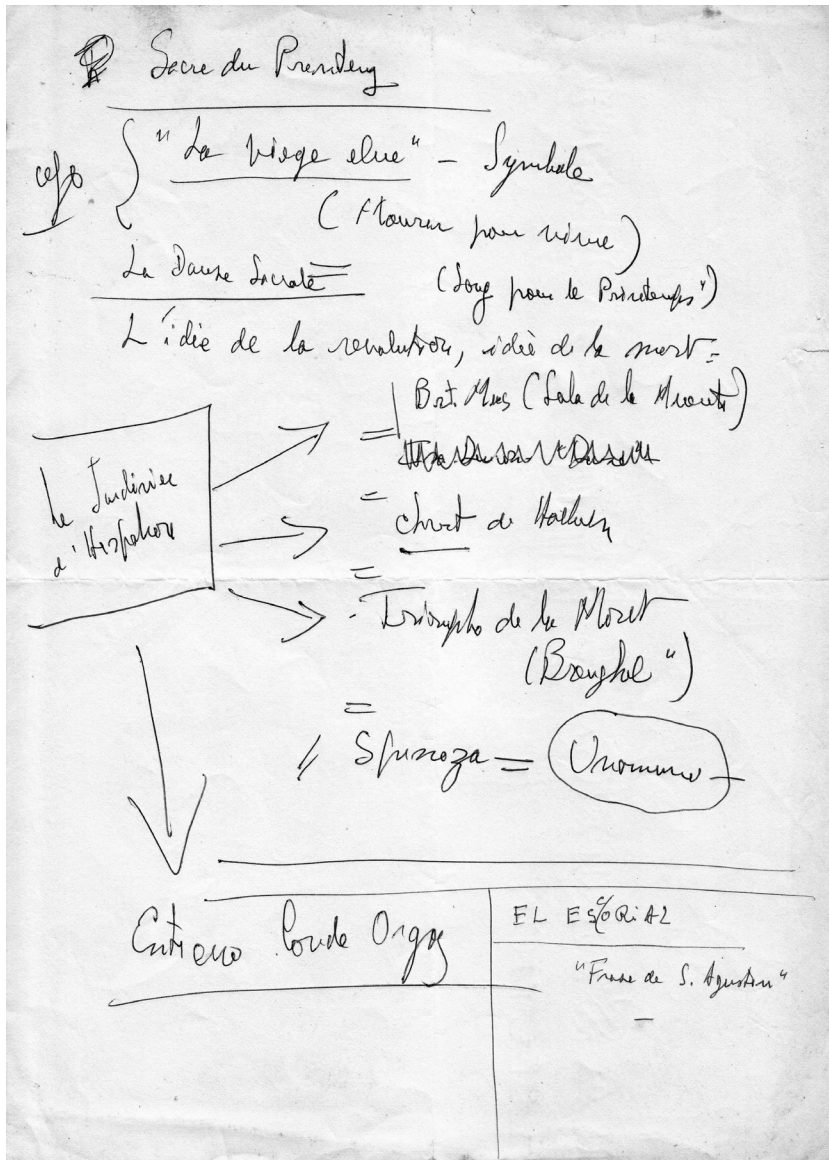 Sacre du Prentemp
"La vierge elue" - Symbole
(Mourir pour vivre)
La Danse Sacrale =
(Song pour le Printemps")
L'idée de la revolution, idée de la mort =
Brit. Mus (Sala de la Muerte)
Le Jardinier
d'Hispahon
=
=
Christ de Holbein
=
Triompho de la Mort
(Brueghel")
=
Spinoza = Unamuno
Entierro Conde Orgaz
EL ESCORIAL
"Frase de S. Agustin"